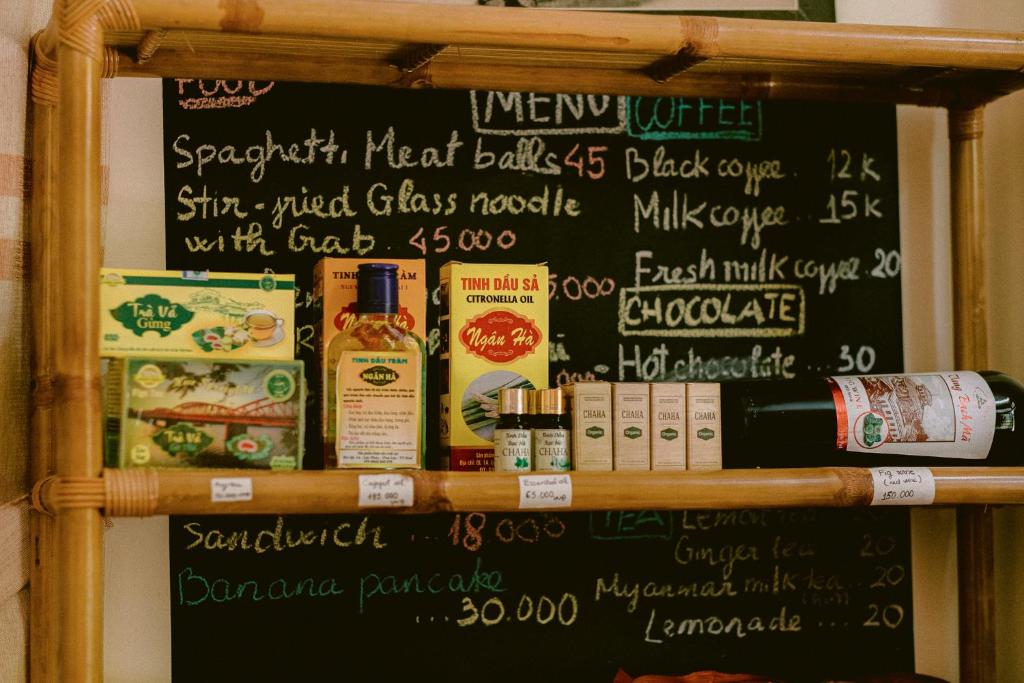 FOOD
MENU
COFFEE
Spaghetti Meat balls 45
Stir-fried Glass noodle
with Crab .. 45.000
5.000
Black coffee . 12 k
Milk coffee .. 15 k
Fresh milk coffee .20
CHOCOLATE
Hot chocolate .. 30
Sandwich ... 18.000
Banana pancake
... 30.000
TEA
Lemon tea 20
Ginger tea 20
Myanmar milk tea .. 20
Lemonade ... 20
Trà Vả
Gừng
Trà Vả
TINH DẦU TRÀM
TINH DẦU TRÀM
NGÂN HÀ
TINH DẦU SẢ
CITRONELLA OIL
Ngân Hà
Tinh Dầu
CHAHA
Tinh Dầu
Bạc Hà
CHAHA
CHAHA
Organic
CHAHA
Organic
CHAHA
Organic
CHAHA
Organic
Cajeput oil
195.000 VND
Essential oil
65.000 VND
Fig wine
(red wine)
150.000